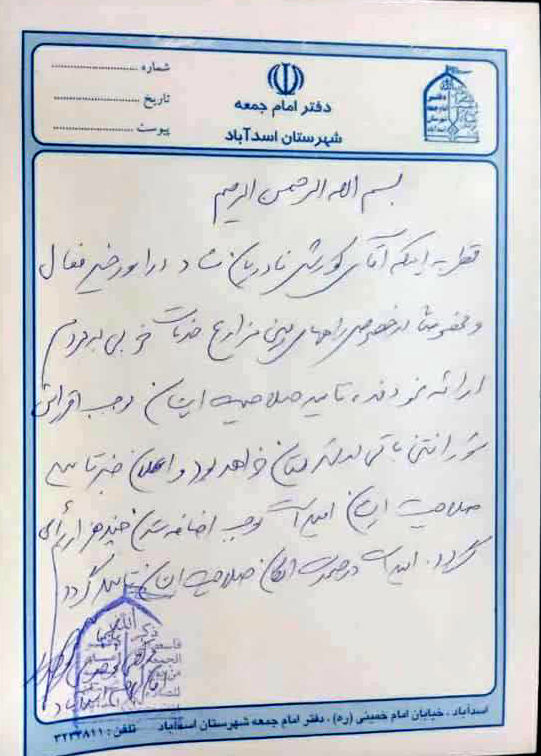 شماره
تاریخ
پیوست
دفتر امام جمعه
شهرستان اسدآباد
بسم الله الرحمن الرحیم
نظر به اینکه آقای کورش نادریان در امور خیر فعال
و مخصوصا در خصوص راههای بین مزارع خدمات خوبی به مردم
ارائه نمودند، تایید صلاحیت ایشان موجب افزایش
خواهد بود و اعلان خبر تایید
صلاحیت ایشان امید است موجب اضافه شدن چند هزار رأی
گردد. امید است در صورت امکان صلاحیت ایشان تایید گردد
اسدآباد ، خیابان امام خمینی (ره) ، دفتر امام جمعه شهرستان اسدآباد تلفن : ۳۲۳۳۸۱۱